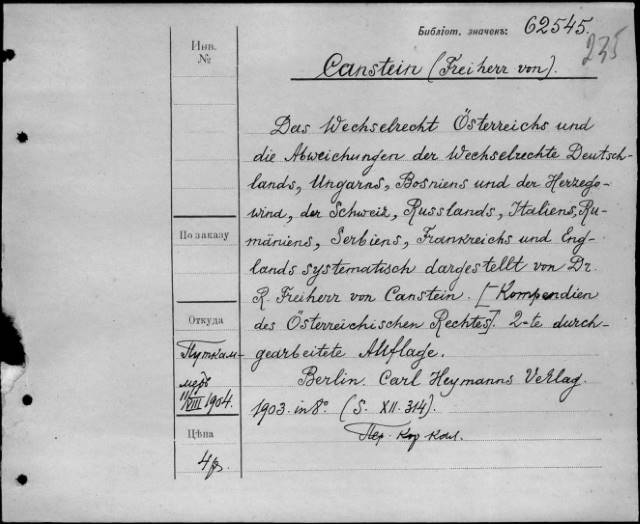 Библіот. значекъ: 62545.
235
Инв.
№
Canstein (Freiherr von).
Das Wechselrecht Österreichs und
die Abweichungen der Wechselrechte Deutsch-
lands, Ungarns, Bosniens und der Herzego-
wind, der Schweiz, Russlands, Italiens, Ru-
mäniens, Serbiens, Frankreichs und Eng-
lands systematisch dargestellt von Dr.
R. Freiherr von Canstein. [Kompendien
des Österreichischen Rechtes]. 2-te durch-
gearbeitete Auflage.
Berlin. Carl Heymanns Verlag.
1903. in 8° (S. XII. 314).
Пер. Кор кол.
По заказу
Откуда
Путкам-
меръ
11/VIII 1904.
Цѣна
4 р.